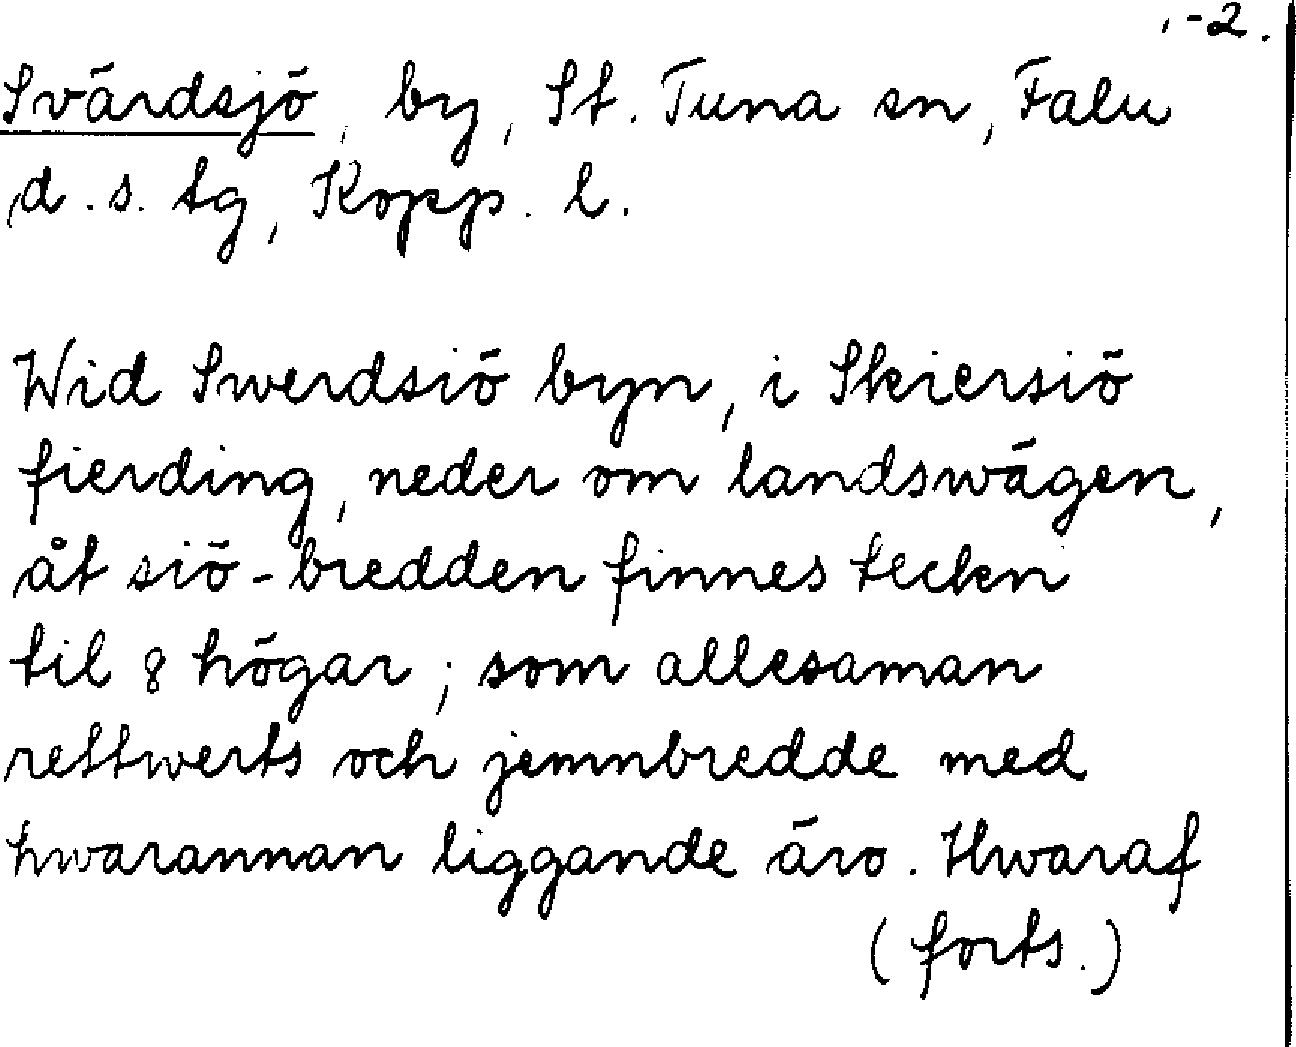 1-2.
Svärdsjö, by, St. Tuna sn, Falu
d. s. tg, Kopp. l.
Wid Swerdsiö byn, i Skiersiö
fierding, neder om landswägen,
åt siö-bredden finnes teckn
til 8 högar; som allesaman
rettwerts och jemnbredde med
hwarannan liggande äro. Hwaraf
(forts.)